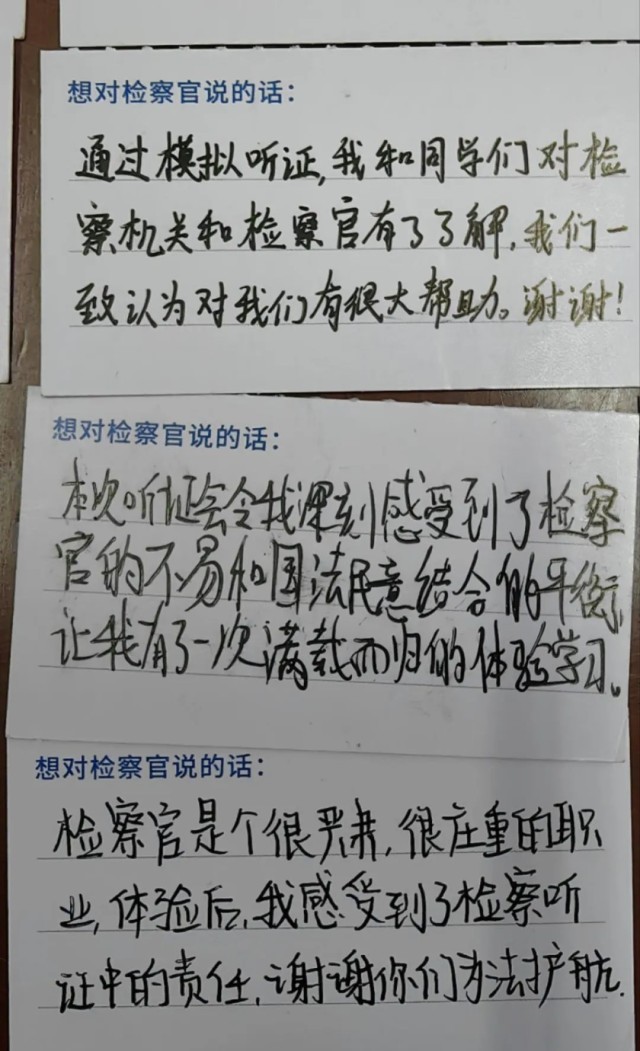 想对检察官说的话：
通过模拟听证,我和同学们对检
察机关和检察官有了了解,我们一
致认为对我们有很大帮助。谢谢!
想对检察官说的话：
本次听证会令我深刻感受到了检察
官的不易和国法民意结合的平衡,
让我有了一次满载而归的体验学习。
想对检察官说的话：
检察官是个很严肃,很庄重的职
业,体验后,我感受到了检察听
证中的责任,谢谢你们为法护航.